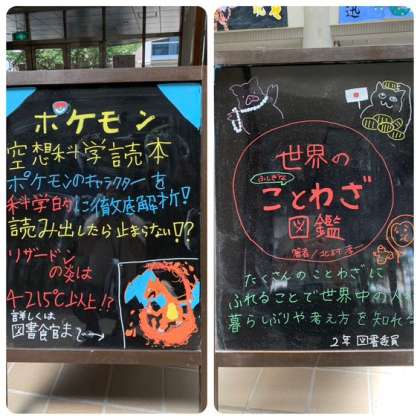 ポケモン
空想科学読本
ポケモンのキャラクターを
科学的に徹底解析!
読み出したら止まらない!?
リザードン
の炎は
4215℃以上!?
詳しくは
図書館まで→
世界の
ふしぎな
ことわざ
図鑑
著者/北村
たくさんのことわざに
ふれることで世界中の人
暮らしぶりや考え方を知れる
2年 図書委員